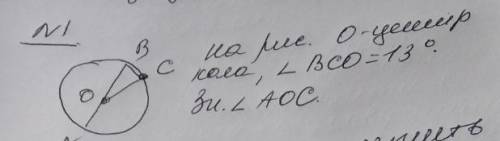 N1
на рис. О-центр
кола, ∠ BCO = 13°.
Зн. ∠ AOC.
B
C
O